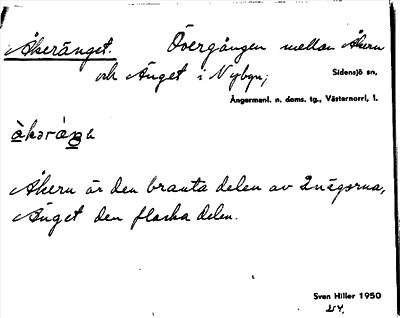 Åkeränget. Övergången mellan Åkern
och Änget i Nybyn;
Sidensjö sn,
Ångermanl. n. doms. tg., Västernorrl, l.
Åkern är den branta delen av 2 vägorna,
Änget den flacka delen.
Sven Hiller 1950